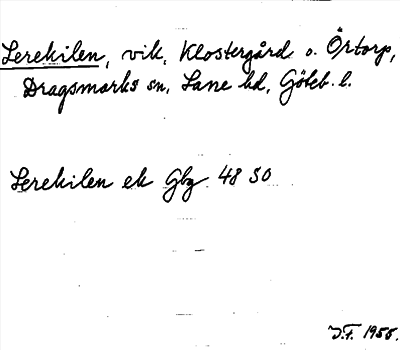 Lerekilen, vik, Klostergård o. Örtorp,
Dragsmarks sn, Lane hd, Göteb. l.
Lerekilen ek Gbg 48 SO
J.F. 1955.